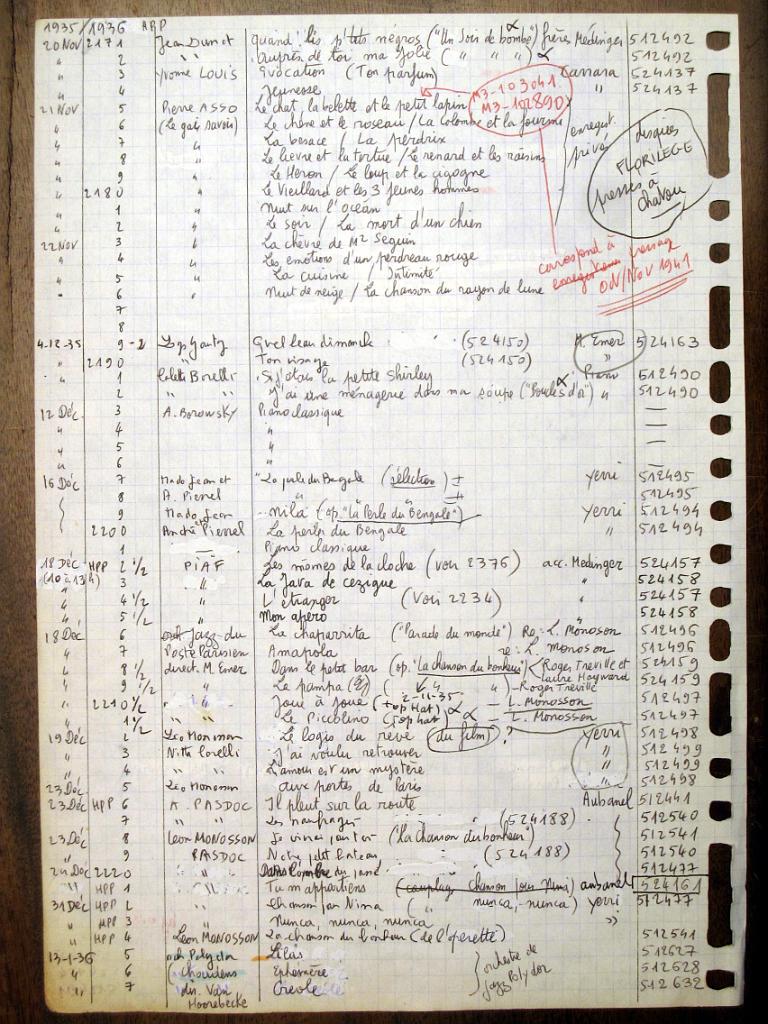 1935/1936 HPP
20 Nov 2171 Jean Dunot Quand les p'tits négros ("Un soir de bombe") frères Médinger 512492
" 2 " Auprès de toi ma jolie ( " " " ) 512492
" 3 Yvonne LOUIS Evocation (Ton parfum) Carrara 524137
" 4 Jeunesse " 524137
M3-103041
M3-102890
21 Nov 5 Pierre ASSO Le chat, la belette et le petit lapin
" 6 (Le gai savoir) Le chêne et le roseau / La colombe et la fourmi
" 7 " La besace / La perdrix
" 8 " Le lievre et la tortue / Le renard et les raisins
" 9 " Le Heron / Le loup et la cigogne
enregist. privé
" 2180 " Le Vieillard et les 3 jeunes hommes
disques FLORILEGE pressés à Chatou
" 1 " Nuit sur l'océan
" 2 " Le soir / La mort d'un chien
22 Nov 3 " La chèvre de Mr Seguin
" 4 " Les emotions d'un perdreau rouge
" 5 " La cuisine / Intimité
" 6 " Nuit de neige / La chanson du rayon de lune
7
8
correspond à pressage Oct/Nov 1941
4-12-35 9-2 Quel beau dimanche (524150) M. Emer 524163
" 2190 " Ton visage (524150) "
" 1 Colette Borelli Si j'étais la petite Shirley Piano 512490
" 2 " " J'ai une ménagerie dans ma soupe ("Boucles d'or") " 512490
12 Déc 3 A. Borowsky Piano classique —
" 4 " —
" 5 " —
" 6 " —
16 Déc 7 Mado Jean et "La perle du Bengale (sélection) I Yerri 512495
8 A. Pierrel " II 512495
9 Mado Jean Mila (op. "La Perle du Bengale") Yerri 512494
2200 André Pierrel La perle du Bengale " 512494
1 — Piano classique
18 Déc HPP 2 1/2 PIAF Les mômes de la cloche (voir 2376) acc. Medinger 524157
(10 à 13h) 3 " La Java de cezigue " 524158
" 4 1/2 " L'étranger (Voir 2234) " 524157
" 5 1/2 " Mon apéro 524158
18 Déc 6 orch Jazz du La chaparrita ("Parade du monde") Re: L. Monosson 512496
" 7 Poste Parisien Amapola re: L. Monosson 512496
" 8 1/2 direct. M. Emer Dans le petit bar (op. "La chanson du bonheur") Roger Tréville et Laure Hayward 524159
" 9 1/2 " La pampa ( " ) - Roger Tréville 524159
" 2210 1/2 " Joue à joue (top Hat) 2-11-35 - L. Monosson 512497
" 1 1/2 " " Le Piccolino (Top hat) - L. Monosson 512497
19 Déc 2 Leo Monosson Le logis du rêve (du film)? Yerri 512498
" 3 Nitta Corelli J'ai voulu retrouver " 512499
" 4 " " L'amour est un mystère " 512499
23 Déc 5 Léo Monosson aux portes de Paris " 512498
23 Déc HPP 6 A. PASDOC Il pleut sur la route Aubanel 512441
" 7 " " Les naufragés (524188) 512540
23 Déc 8 Leon MONOSSON ("la chanson du bonheur") 512541
" 9 PASDOC Notre petit bateau (524188) 512540
24 Déc 2220 " " Dans l'ombre du passé 512477
" HPP 1 " Tu m'appartiens (couplage chanson pour Nina) aubanel 524161
31 Déc HPP 2 " Chanson pour Nina ( " nunca, nunca) Yerri 512477
" HPP 3 " Nunca, nunca, nunca "
" HPP 4 Léon MONOSSON La chanson du bonheur (de l'opérette) 512541
13-1-36 5 orch Polydor Lilas orchestre de jazz Polydor 512627
" 6 (choudens Ephémère 512628
" 7 dir. Van Hoorebecke Creole 512632